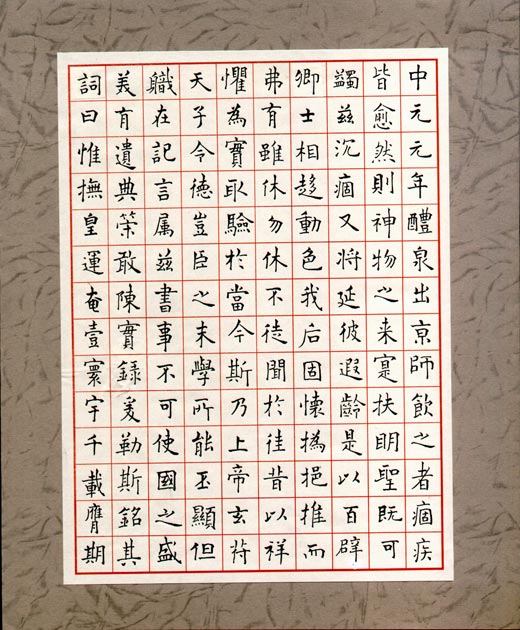 中元元年醴泉出京師飲之者痼疾
皆愈然則神物之来寔扶明聖既可
蠲兹沉痼又将延彼遐齡是以百辟
卿士相趍動色我后固懷撝挹推而
弗有雖休勿休不徒聞於徃昔以祥
懼為實取驗於當今斯乃上帝玄苻
天子令徳豈臣之末學所能丕顯但
軄在記言属兹書事不可使國之盛
美有遺典策敢陳實録爰勒斯銘其
詞曰惟撫皇運奄壹寰宇千載膺期